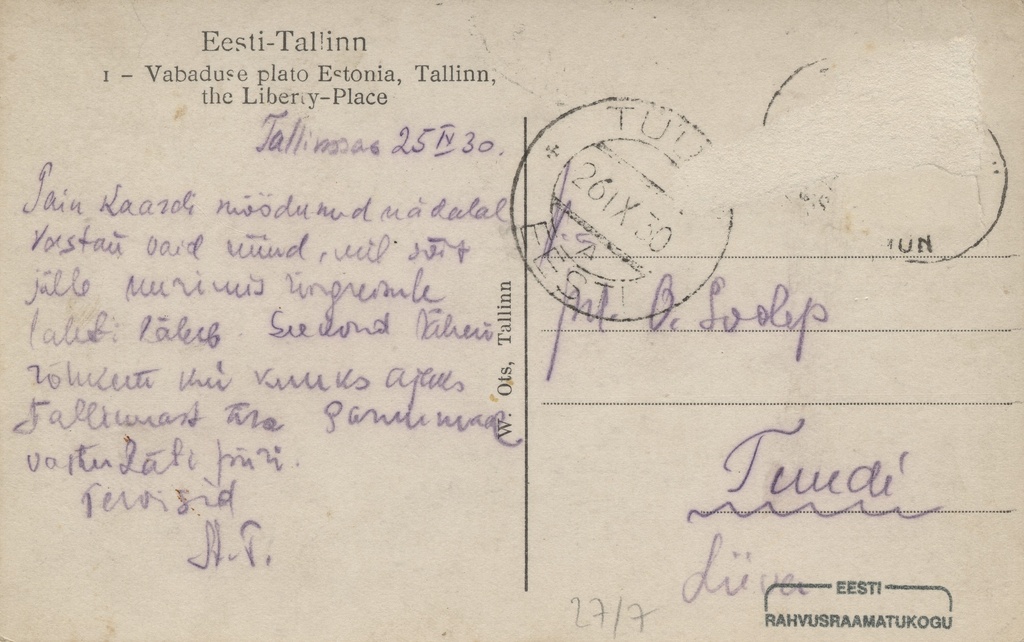 Eesti-Tallinn
1 – Vabaduse plato Estonia, Tallinn,
the Liberty-Place
Tallinnas 25 IV 30.
Sain kaardi möödunud nädalal
Vastan vaid nüüd, mil sõit
jälle ringreisule
lahti läheb. Seekord lähen
rohkem kui kuuks ajaks
Tallinnast ära Pärnumaale
vastu Läti piiri.
Tervisid
A.T.
W. Ots, Tallinn
EESTI
26 IX 30
A
O. Soolep
Tuudi
27/7
EESTI
RAHVUSRAAMATUKOGU